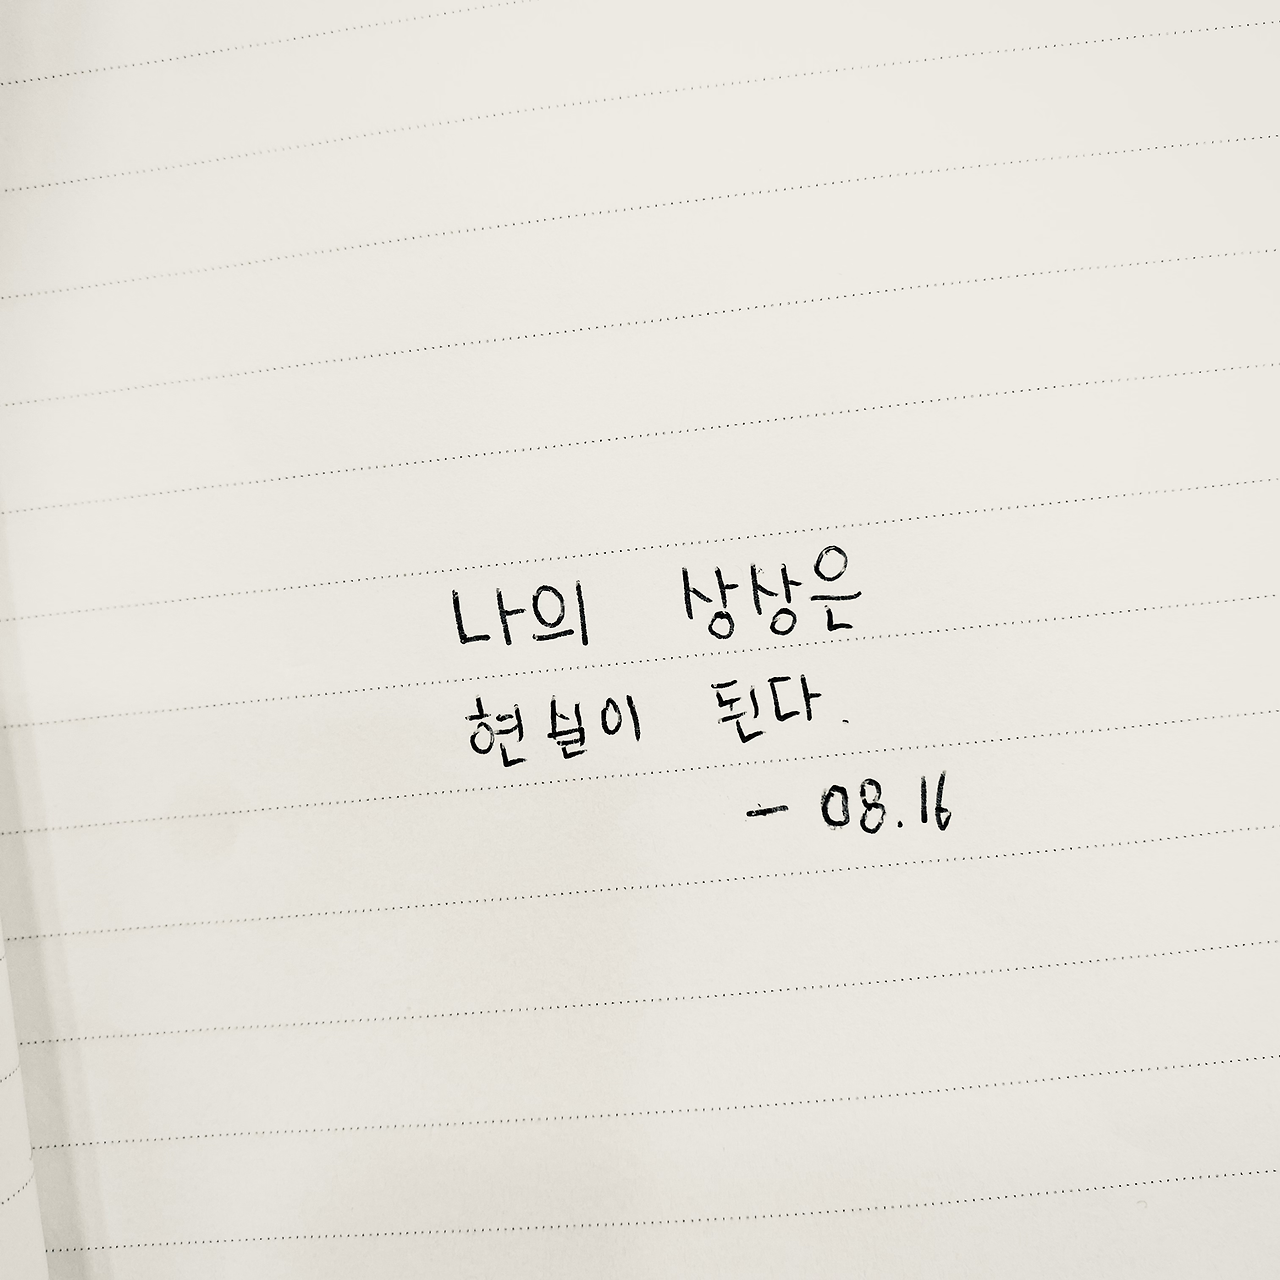 나의 상상은
현실이 된다.
- 08.16